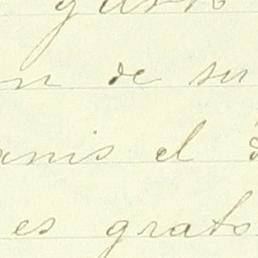 gusto
n de su
anis el
es grato